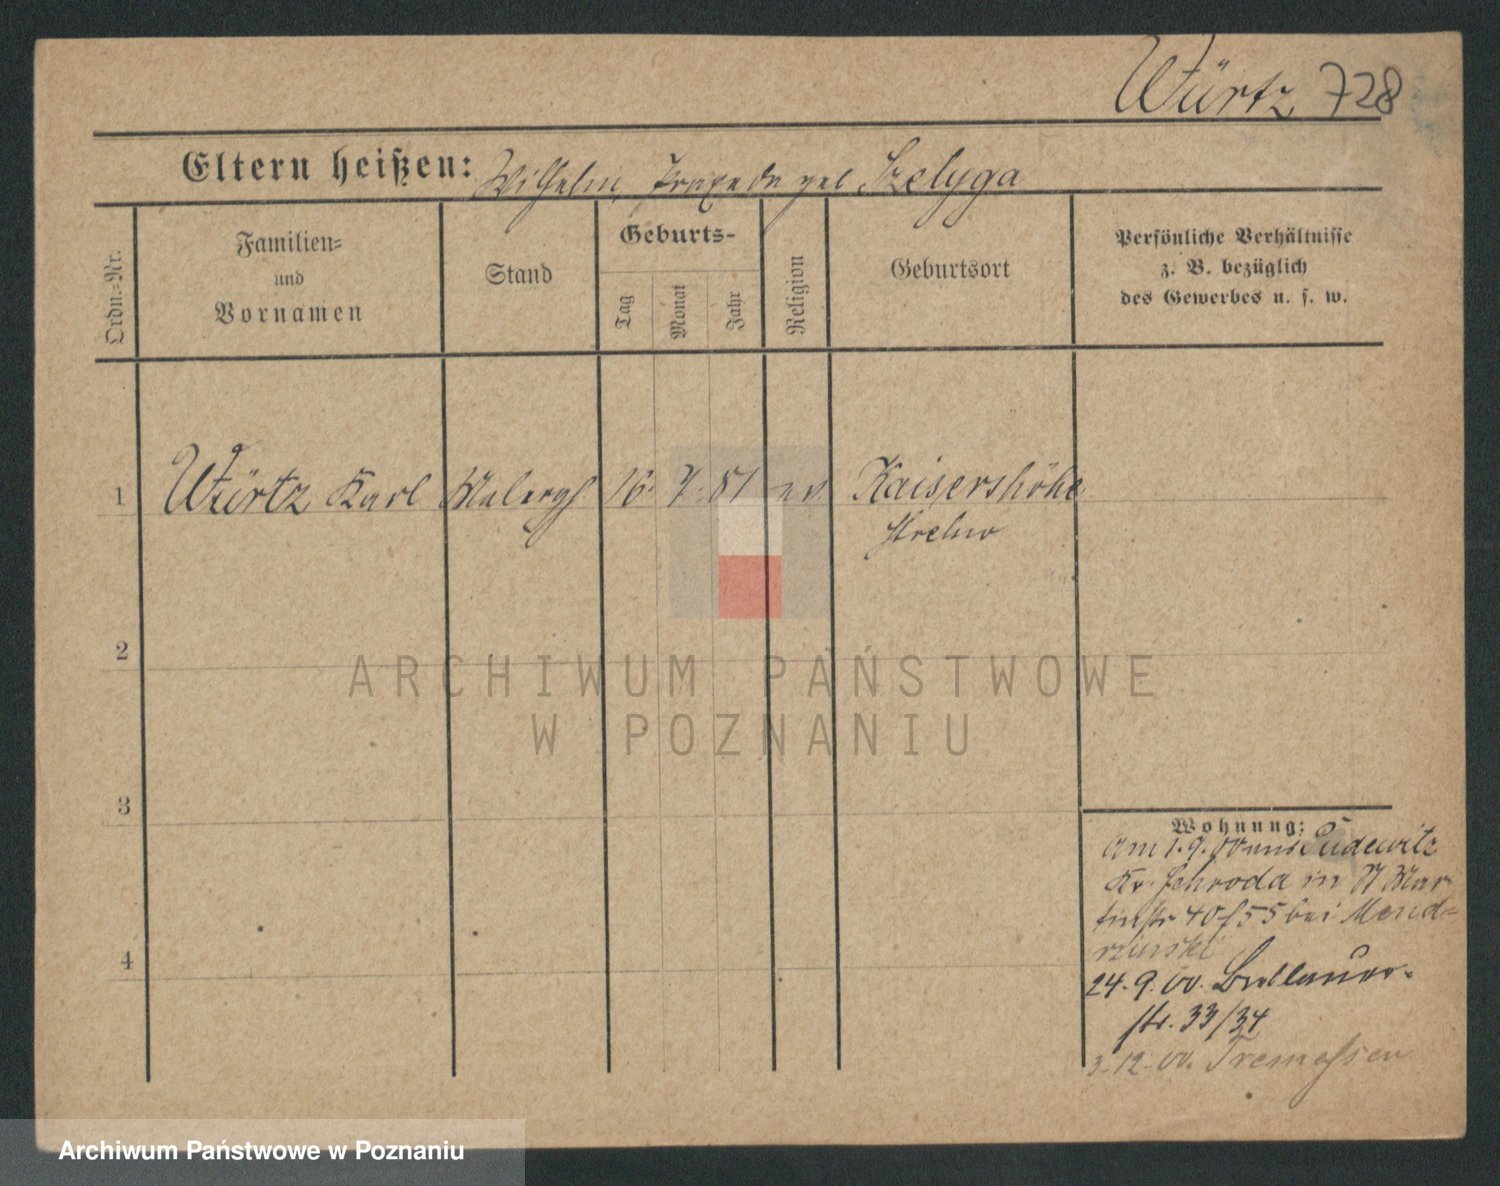 Würtz 728
Eltern heißen: Wilhelm, Praxeda geb Szelyga
Ordn.=Nr.
Familien=
und
Vornamen
Stand
Geburts-
Tag
Monat
Jahr
Religion
Geburtsort
Persönliche Verhältnisse
z. B. bezüglich
des Gewerbes u. s. w.
1 Würtz Karl Malergh 16. 7. 81 ev. Kaisershöhe
Strelno
2
ARCHIWUM PAŃSTWOWE
W POZNANIU
3
4
Wohnung:
Am 1.9.00 aus Pudewitz
Kr. Schroda in St Mar
tinstr 40/55 bei Mend=
rzinski
24.9.00. Breslauer=
str. 33/34
3.12.00. Tremessen
Archiwum Państwowe w Poznaniu